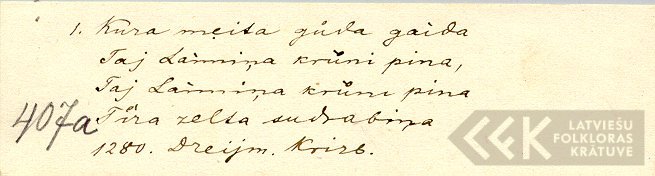 1. Kura meita gůda gaida
Taj Laimiņa krůni pina,
Taj Laimiņa krůni pina
407a Tira zelta sudrabiņa
1280. Dreijm. Krizb.
LATVIEŠU
FOLKLORAS
KRĀTUVE